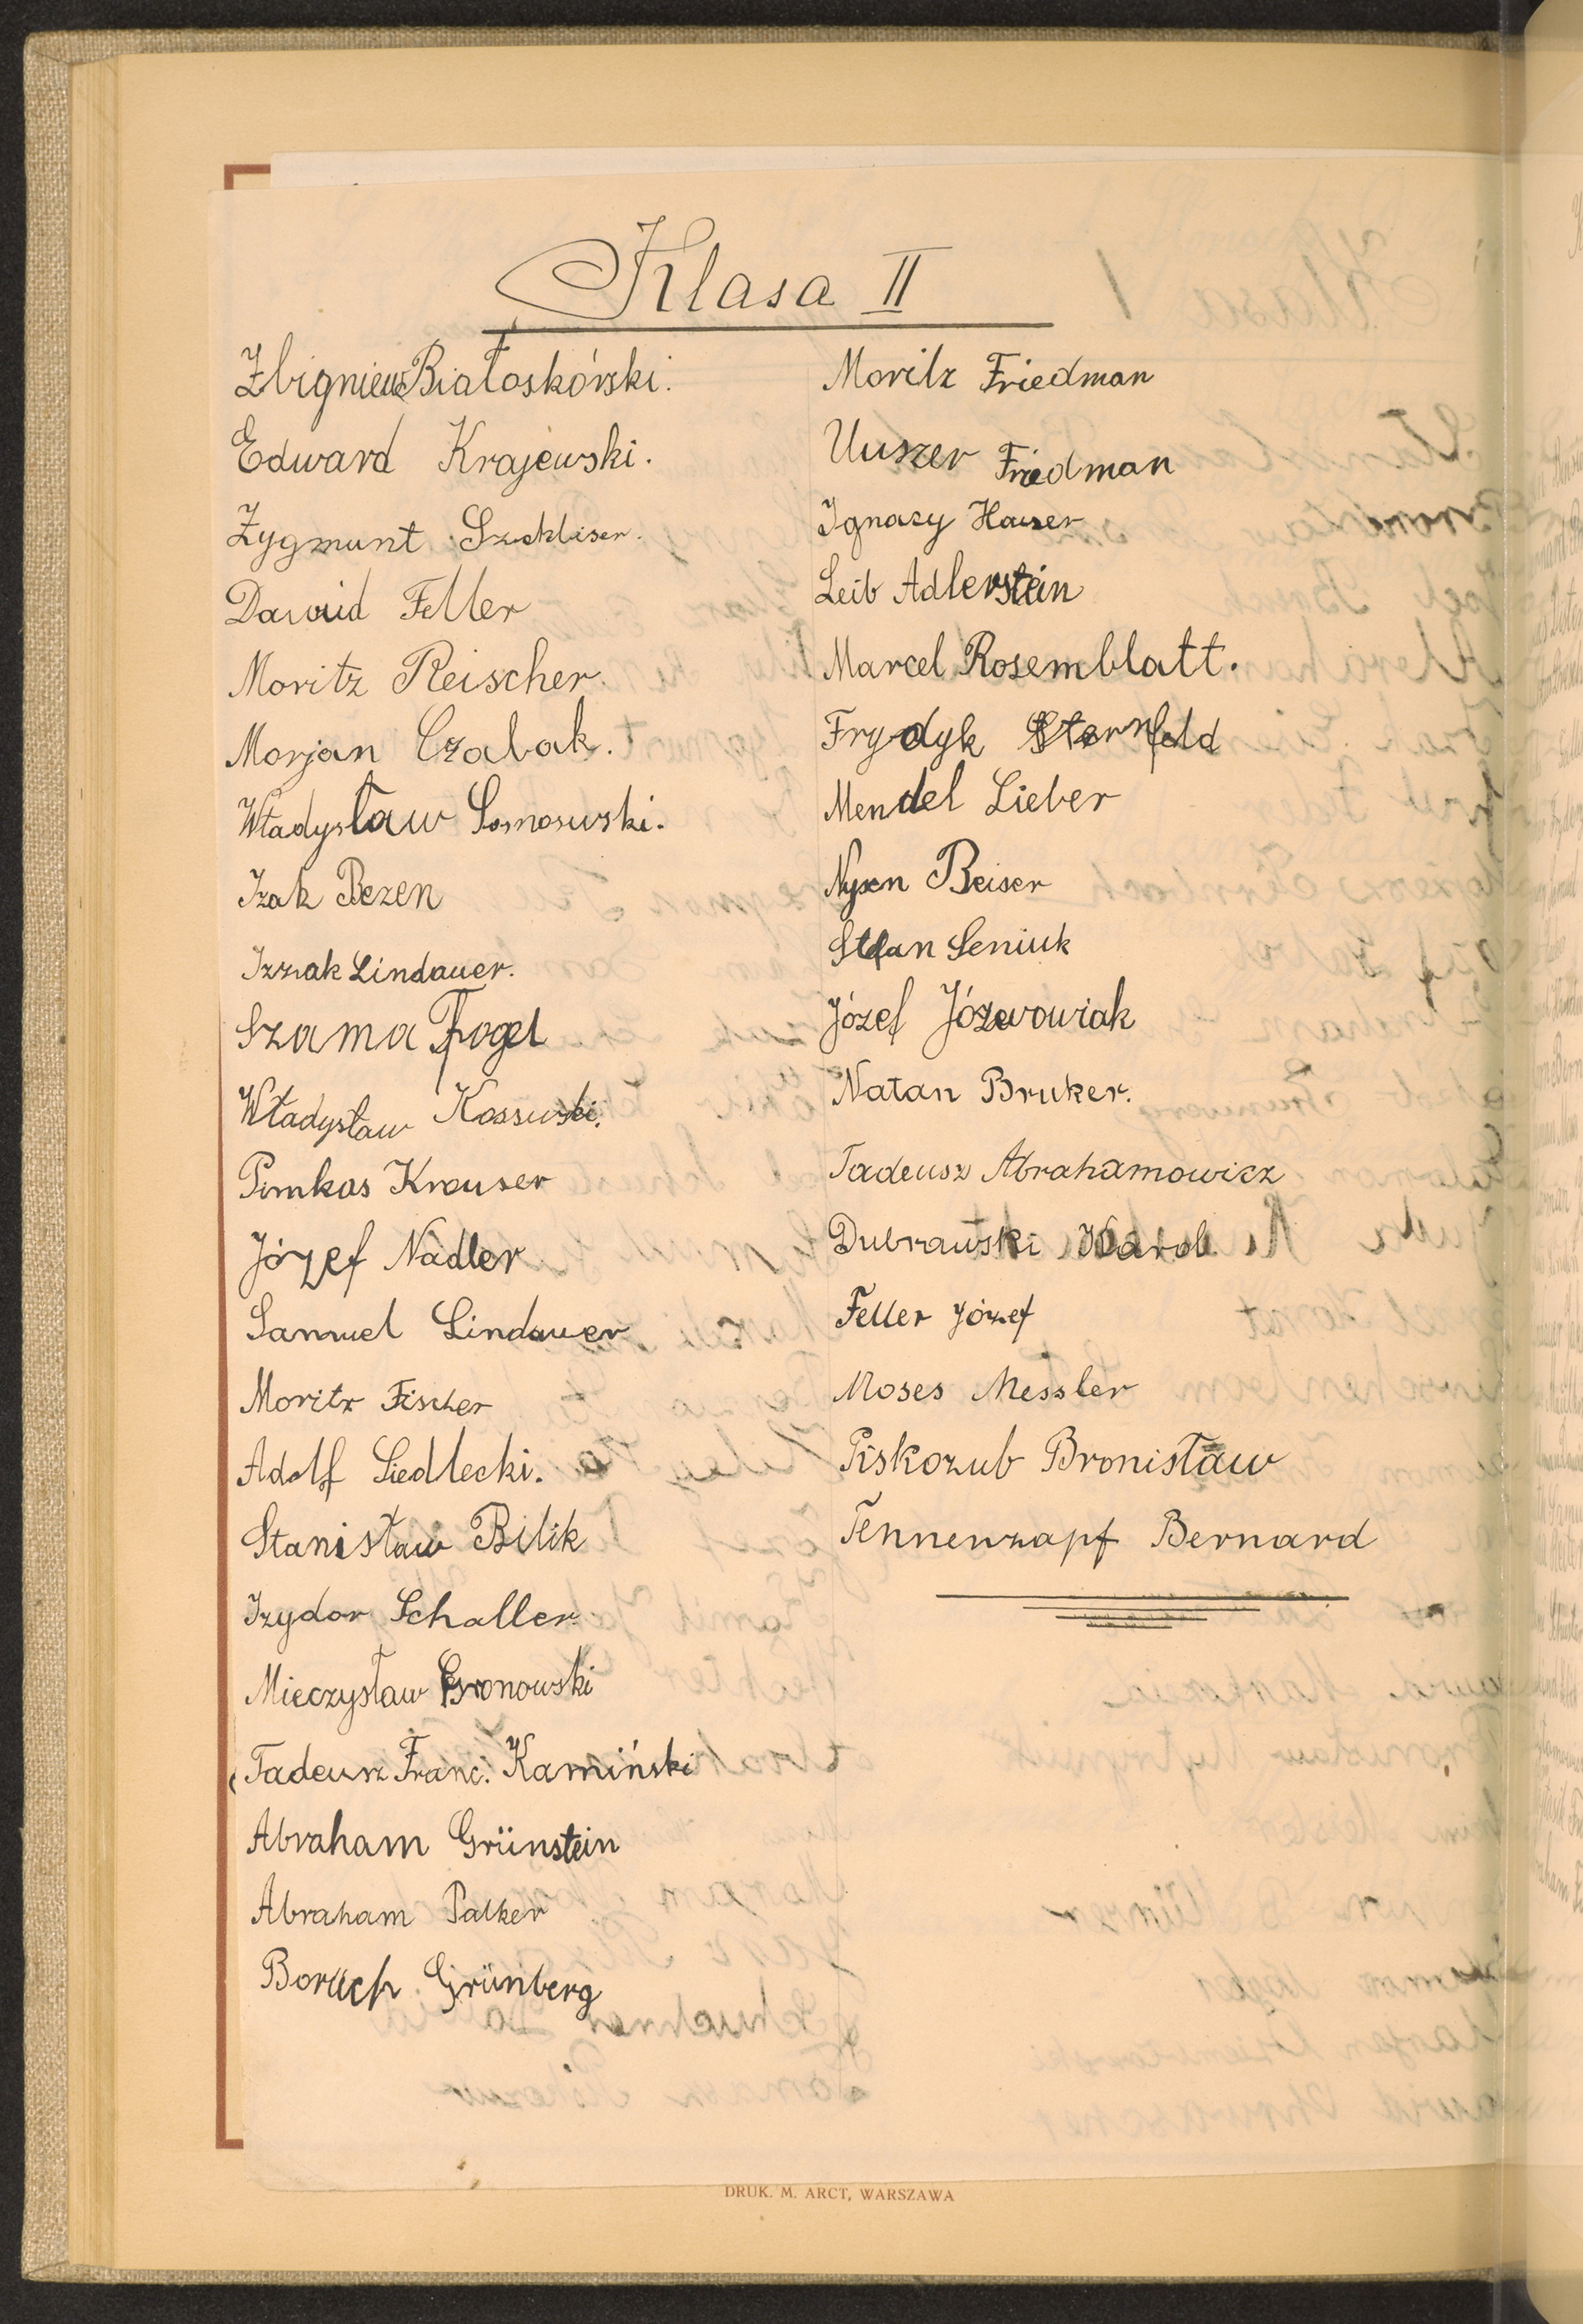 Klasa II
Zbigniew Białoskórski.
Edward Krajewski.
Zygmunt
Dawid Feller
Moritz Reischer.
Morjan Czabak.
Władysław Somosuski.
Izak Bezen
Izzak Lindauer.
Szama Fogel
Władysław Kossuski.
Pimkas Krauser
Józef Nadler
Samuel Lindauer
Moritz Fischer
Adolf Siedlecki.
Stanisław Bilik
Izydor Schaller.
Mieczysław Gronowski
Tadeusz Franc. Kamiński
Abraham Grünstein
Abraham Palker
Boruch Grünberg
Moritz Friedman
Uuszer Friedman
Ignacy Hauser
Leib Adlerstein
Marcel Rosemblatt.
Frydyk Sternfeld
Mendel Lieber
Nysen Beiser
Stefan Seniuk
Józef Józwowiak
Natan Bruker.
Tadeusz Abrahamowicz
Dubrawski Karol
Feller Józef
Moses Messler
Piskozub Bronisław
Tennenzapf Bernard
DRUK. M. ARCT, WARSZAWA